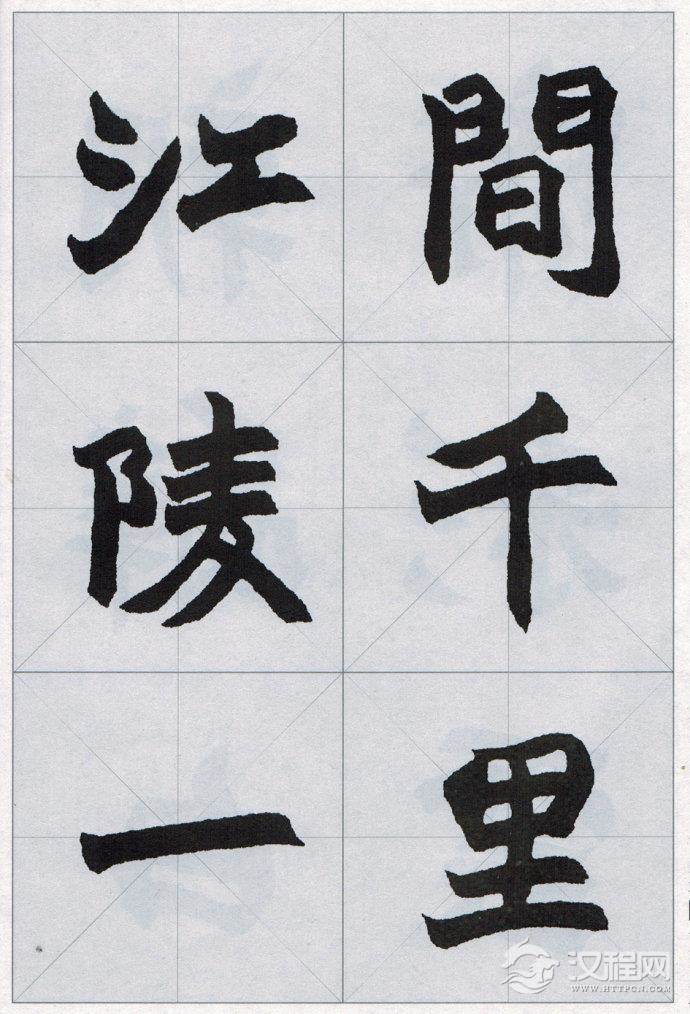 間千里
江陵一
汉程网
WWW.HTTPCN.COM